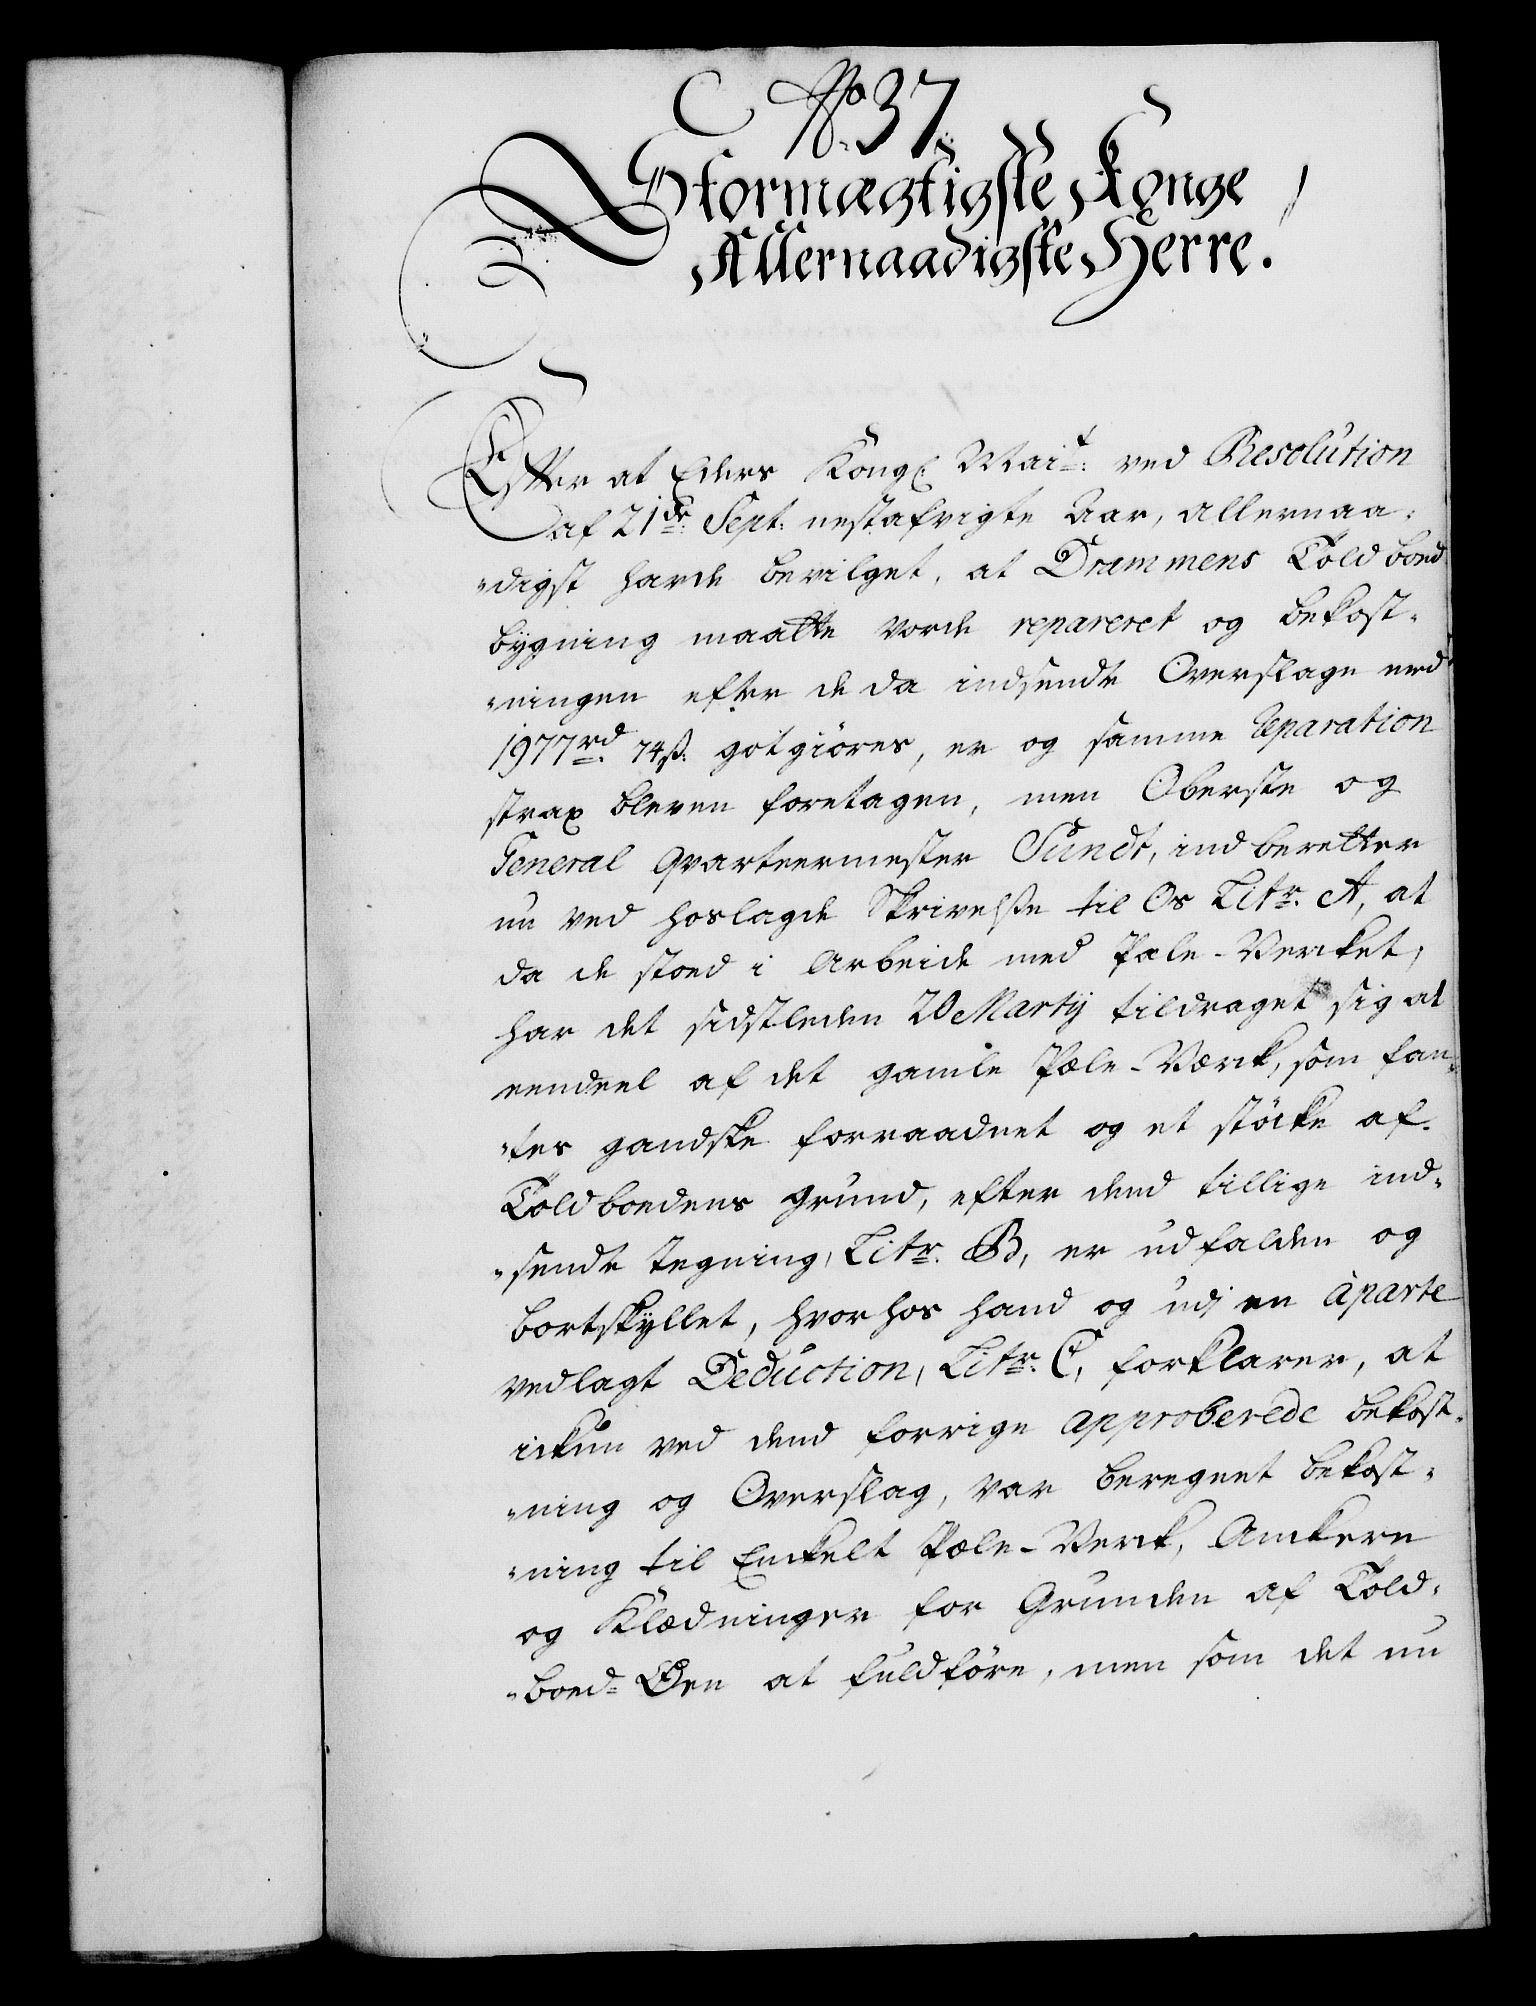 No. 37
Stormægtigste Konge,
Allernaadigste Herre.
Efter at Eders Kongl. Mait: ved Resolution
af 21de Sept: nestafvigte Aar, allernaa-
-digst havde bevilget, at Drammens Toldboed
bygning maatte vorde repareret og bekost-
-ningen efter de da indsendte Overslage med
1977rd 74s: gotgiöres, er og samme reparation
strax bleven foretagen, men Oberste og
General Qvarteermester Sundt, indberetter
nu ved hoslagde Skrivelse til Os Litr. A, at
da de stoed i Arbeide med Pæle-Verket,
har det sidstleden 20 Martij tildraget sig at
eendeel af det gamle Pæle-Værk, som fan-
-tes gandske forraadnet og et stöcke af
Toldboedens grund, efter dend tillige ind-
-sendte Tegning, Litr. B, er udfalden og
bortskyllet, hvorhos hand og udj en àparte
vedlagt Deduction, Litr. C, forklarer, at
ickun ved dend forrige approberede bekost-
-ning og Overslag, var beregnet bekost-
-ning til Enckelt Pæle-Verck, Anckere
og Klædninger for Grunden af Told-
-boed-Öen at fuldföre, men som det nu